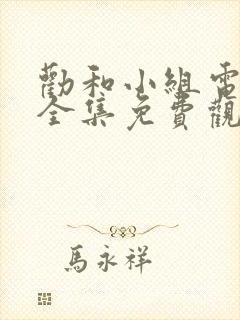 勸和小組電
全集免費觀
馬永祥